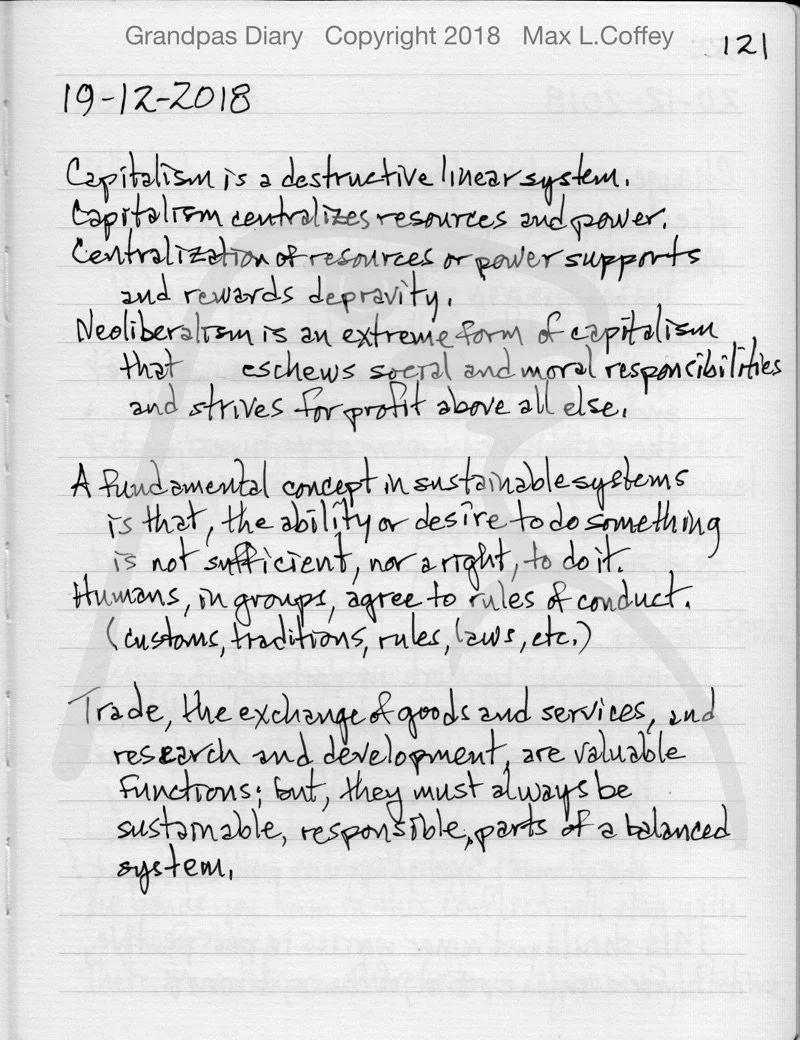 Grandpas Diary Copyright 2018 Max L.Coffey
121
19-12-2018
Capitalism is a destructive linear system.
Capitalism centralizes resources and power.
Centralization of resources or power supports
and rewards depravity.
Neoliberalism is an extreme form of capitalism
that eschews social and moral responsibilities
and strives for profit above all else.
A fundamental concept in sustainable systems
is that, the ability or desire to do something
is not sufficient, nor a right, to do it.
Humans, in groups, agree to rules of conduct.
(customs, traditions, rules, laws, etc.)
Trade, the exchange of goods and services, and
research and development, are valuable
functions; but, they must always be
sustainable, responsible, parts of a balanced
system.